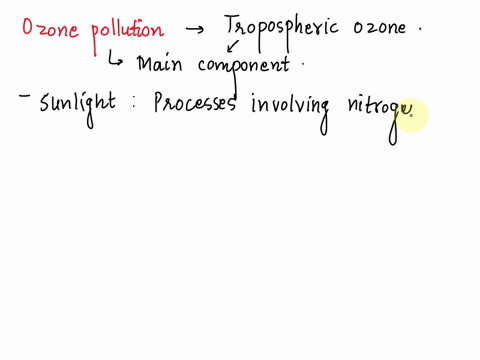 Ozone pollution → Tropospheric ozone.
↳ Main component.
- Sunlight : Processes involving nitroge